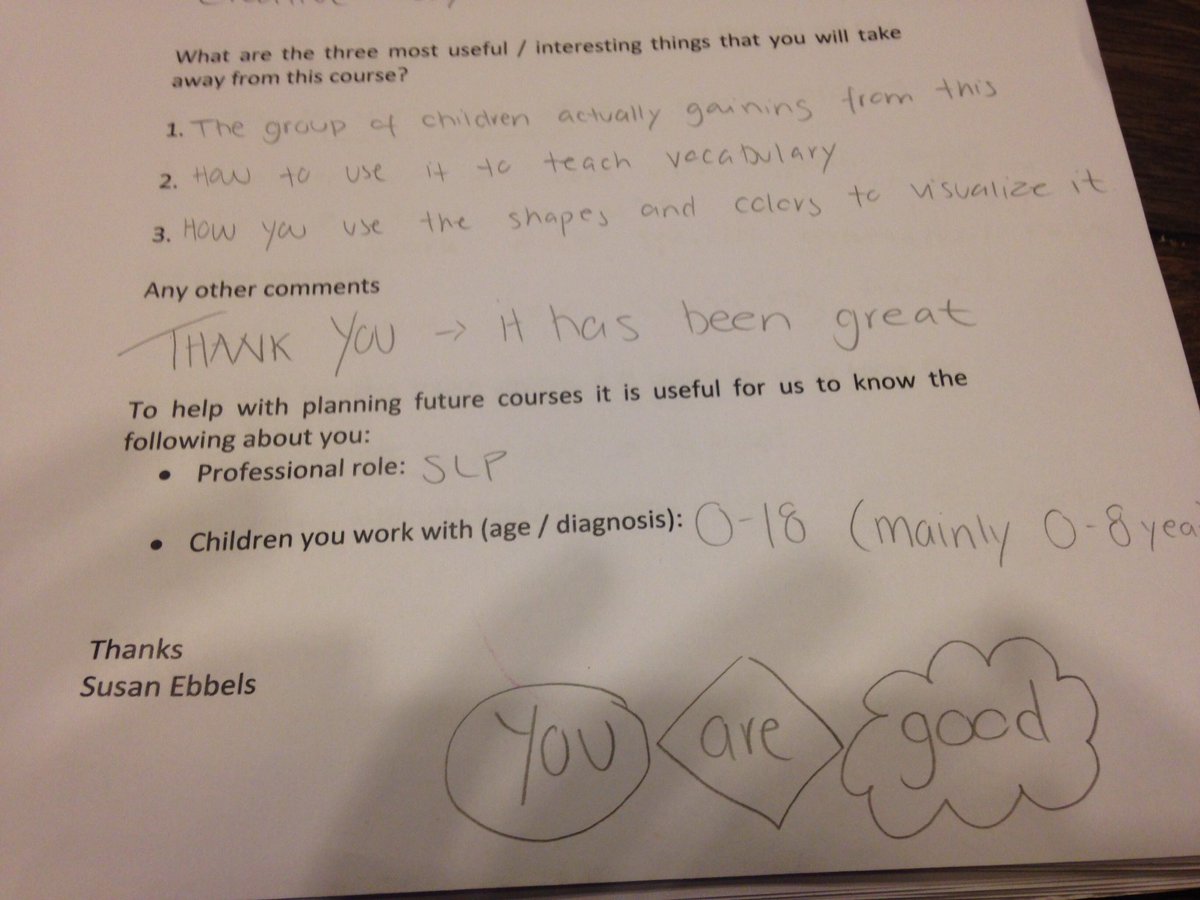 What are the three most useful / interesting things that you will take
away from this course?
1. The group of children actually gaining from this
2. How to use it to teach vocabulary
3. How you use the shapes and colors to visualize it
Any other comments
THANK YOU → it has been great
To help with planning future courses it is useful for us to know the
following about you:
• Professional role: SLP
• Children you work with (age / diagnosis): 0-18 (mainly 0-8 yea
Thanks
Susan Ebbels
you are good